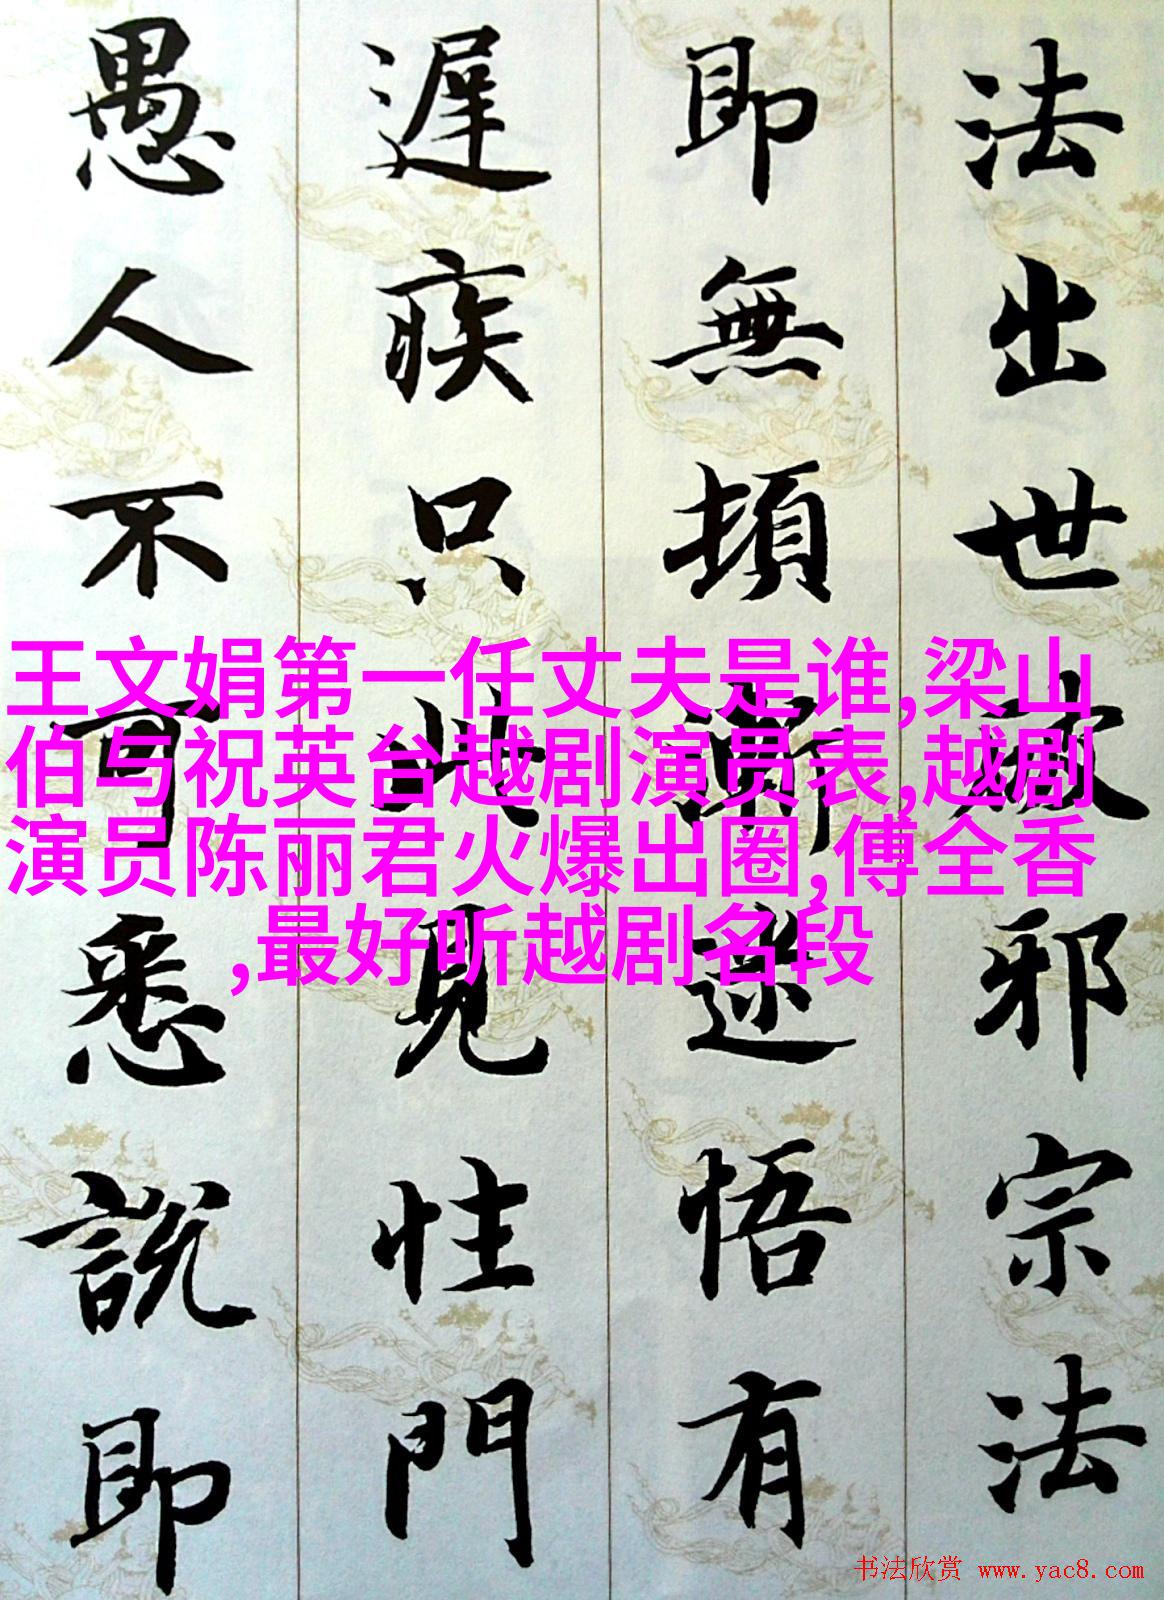 法出世破邪宗法
即無頓漸迷悟有
遲疾只此見性門
愚人不可悉說即
王文娟第一任丈夫是谁,梁山
伯与祝英台越剧演员表,越剧
演员陈丽君火爆出圈,傅全香
,最好听越剧名段
书法欣赏 www.yac8.com